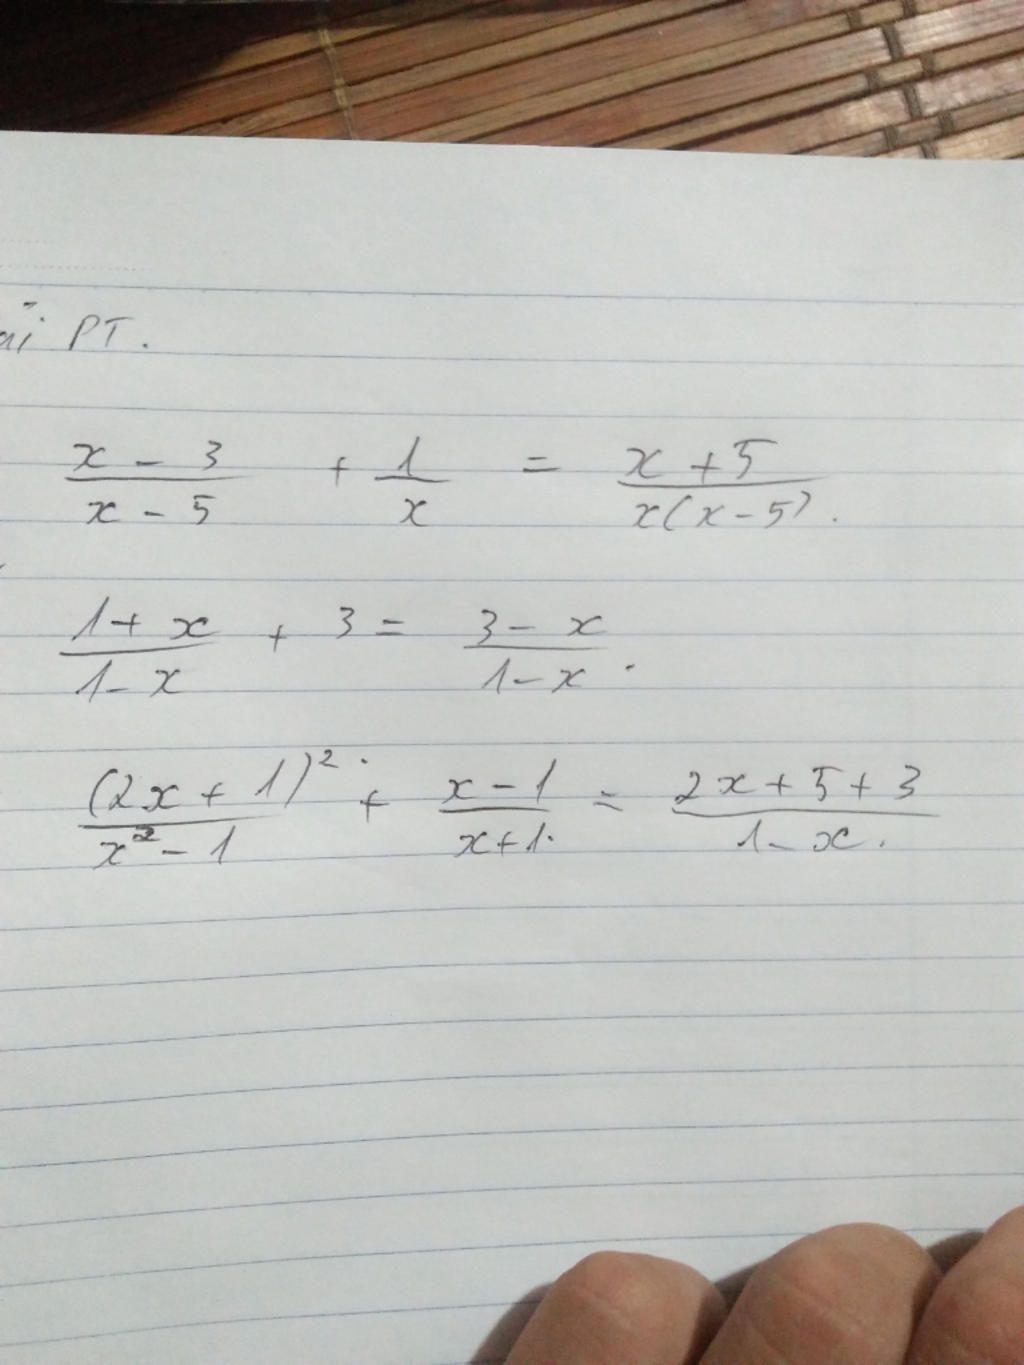 ải PT.
x - 3 / x - 5 + 1 / x = x + 5 / x(x - 5).
1 + x / 1 - x + 3 = 3 - x / 1 - x.
(2x + 1)² / x² - 1 + x - 1 / x + 1. = 2x + 5 + 3 / 1 - x.